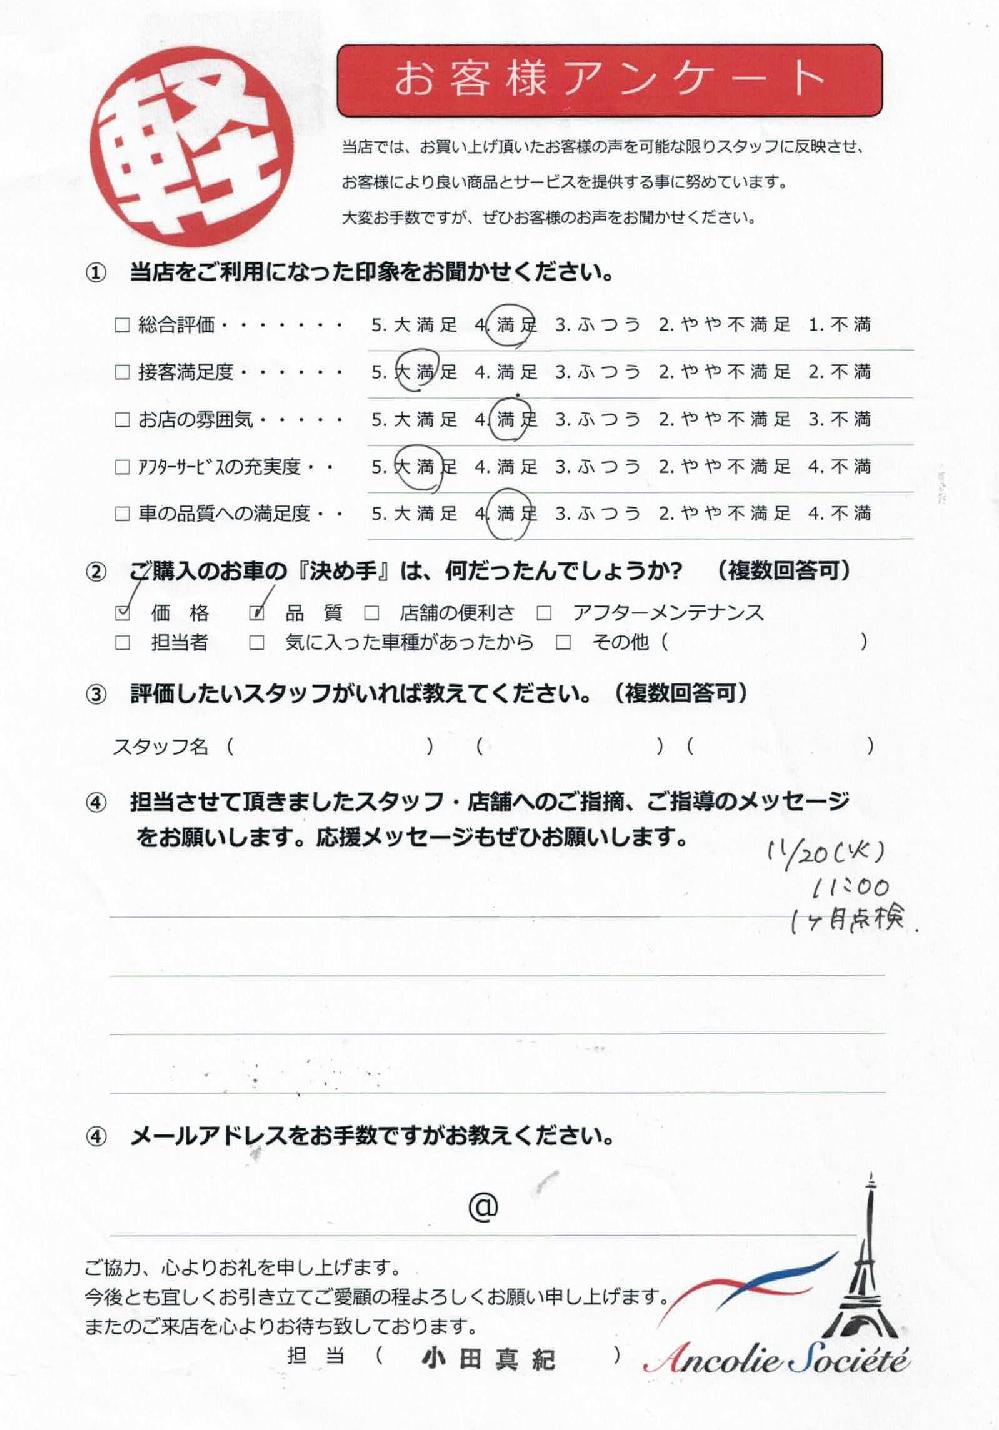 軽
お客様アンケート
当店では、お買い上げ頂いたお客様の声を可能な限りスタッフに反映させ、
お客様により良い商品とサービスを提供する事に努めています。
大変お手数ですが、ぜひお客様のお声をお聞かせください。
① 当店をご利用になった印象をお聞かせください。
□ 総合評価・・・・・・・ 5. 大満足 4. 満足 3. ふつう 2. やや不満足 1. 不満
□ 接客満足度・・・・・・ 5. 大満足 4. 満足 3. ふつう 2. やや不満足 2. 不満
□ お店の雰囲気・・・・・ 5. 大満足 4. 満足 3. ふつう 2. やや不満足 3. 不満
□ ｱﾌﾀｰｻｰﾋﾞｽの充実度・・ 5. 大満足 4. 満足 3. ふつう 2. やや不満足 4. 不満
□ 車の品質への満足度・・ 5. 大満足 4. 満足 3. ふつう 2. やや不満足 4. 不満
② ご購入のお車の『決め手』は、何だったんでしょうか? （複数回答可）
☑ 価 格 ☑ 品 質 □ 店舗の便利さ □ アフターメンテナンス
□ 担当者 □ 気に入った車種があったから □ その他（ ）
③ 評価したいスタッフがいれば教えてください。（複数回答可）
スタッフ名（ ） （ ）（ ）
④ 担当させて頂きましたスタッフ・店舗へのご指摘、ご指導のメッセージ
をお願いします。応援メッセージもぜひお願いします。
11/20(火)
11:00
1ヶ月点検.
④ メールアドレスをお手数ですがお教えください。
@
ご協力、心よりお礼を申し上げます。
今後とも宜しくお引き立てご愛顧の程よろしくお願い申し上げます。
またのご来店を心よりお待ち致しております。
担 当 （ 小田真紀 ）
Ancolie Société